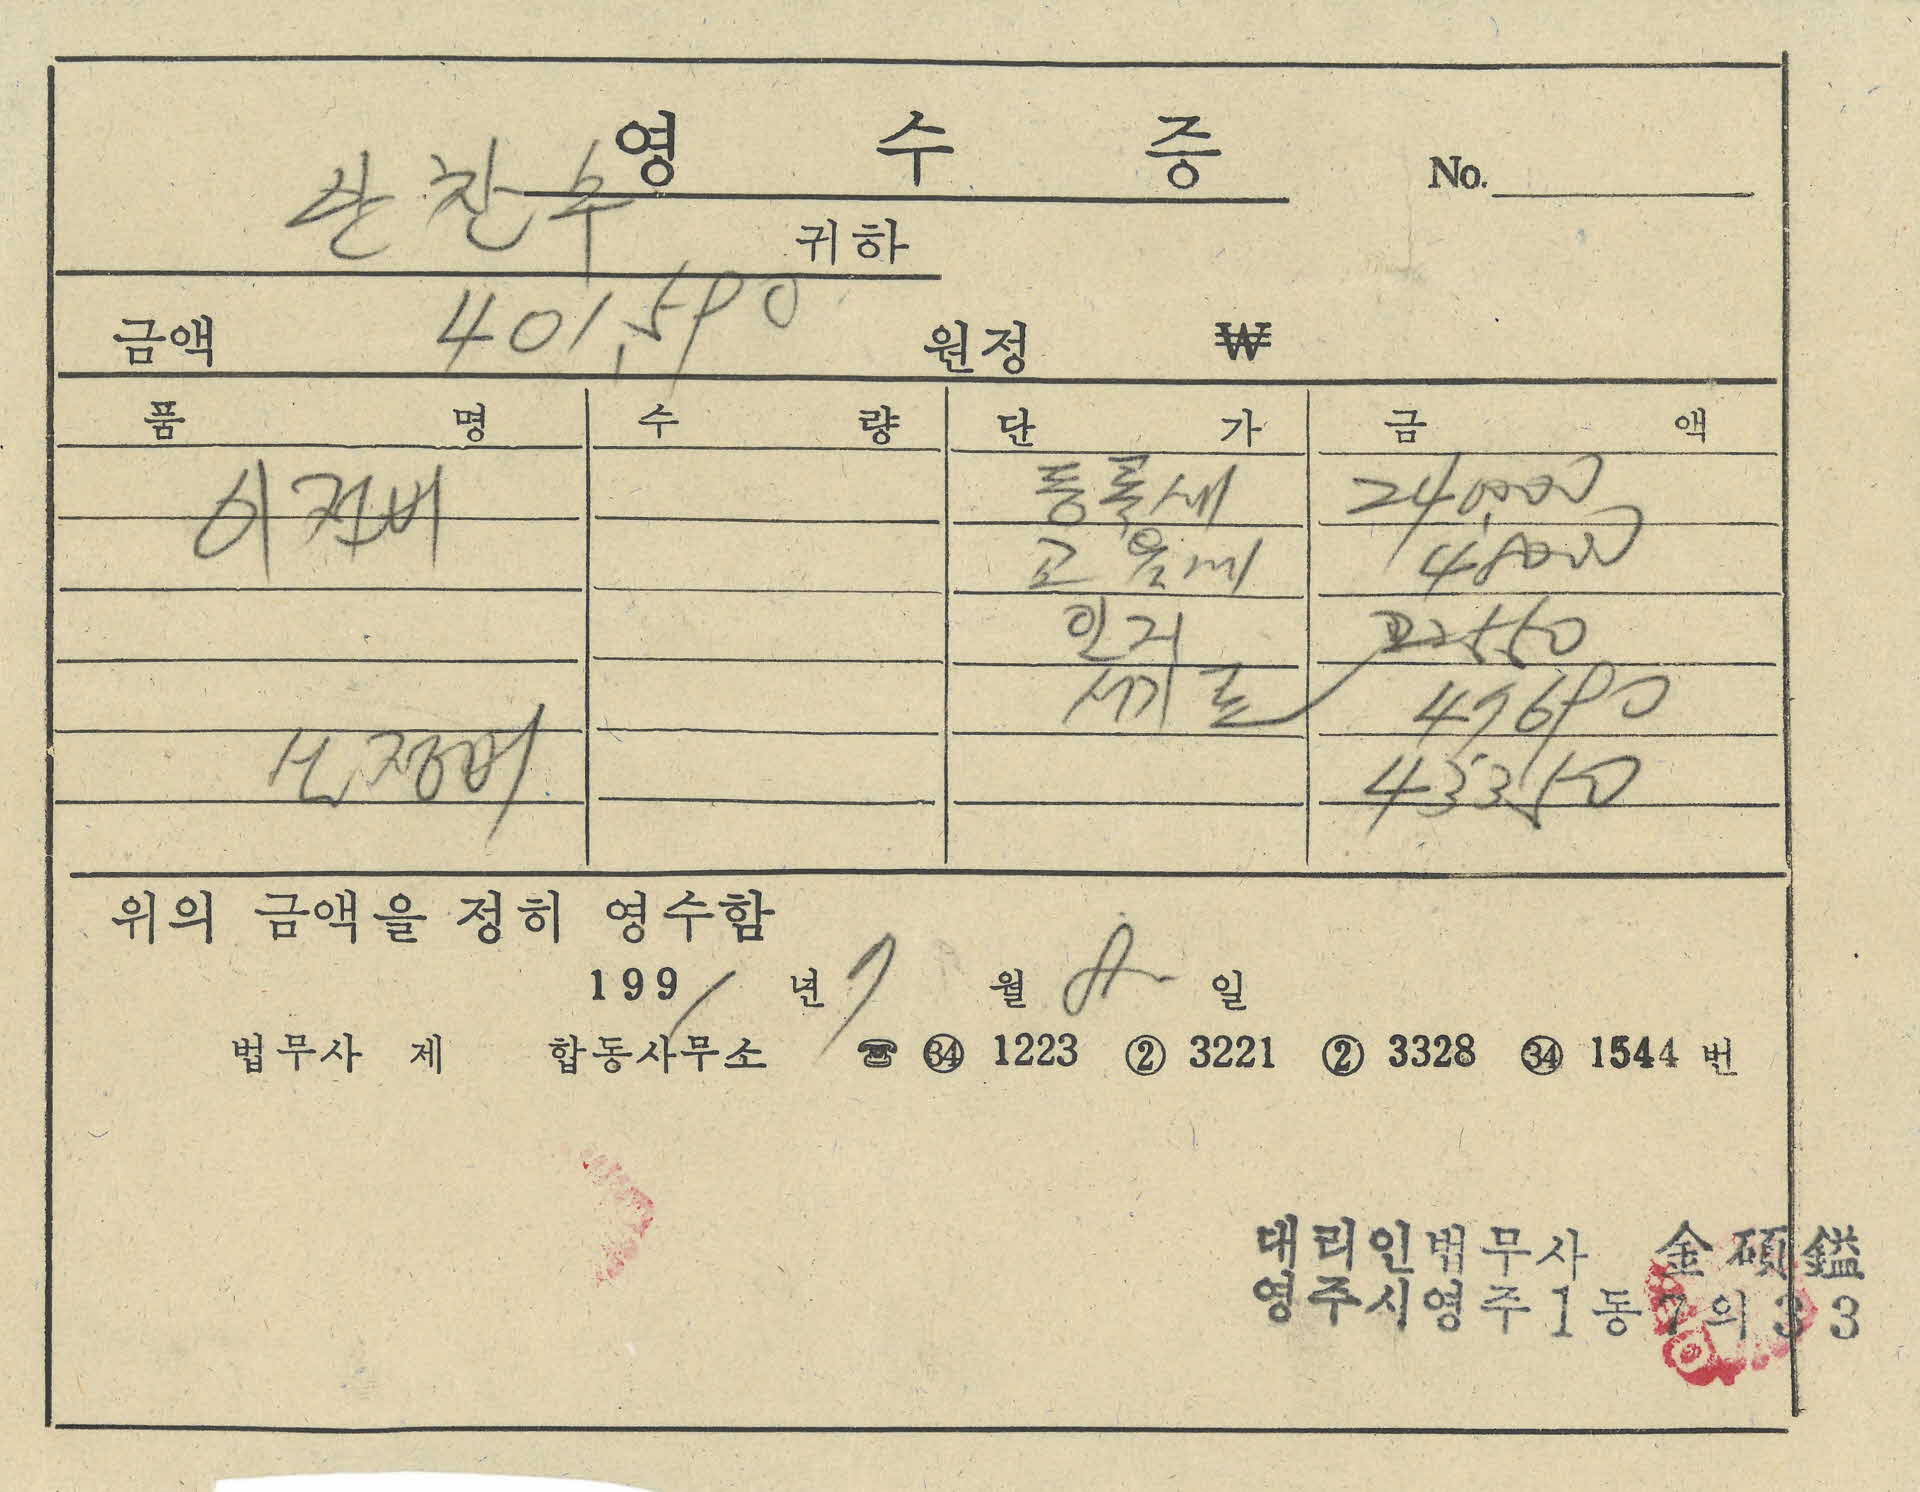 영 수 증
No.
찬수 귀하
금액 401,590 원정 ₩
품 명 수 량 단 가 금 액
이전비 등록세 240,000
교육세 48000
인지 22550
서기료
433150
위의 금액을 정히 영수함
1991 년 7 월 일
법무사 제 합동사무소 ☎ ㉞ 1223 ② 3221 ② 3328 ㉞ 1544 번
대리인법무사 金碩鎰
영주시영주1동7의33